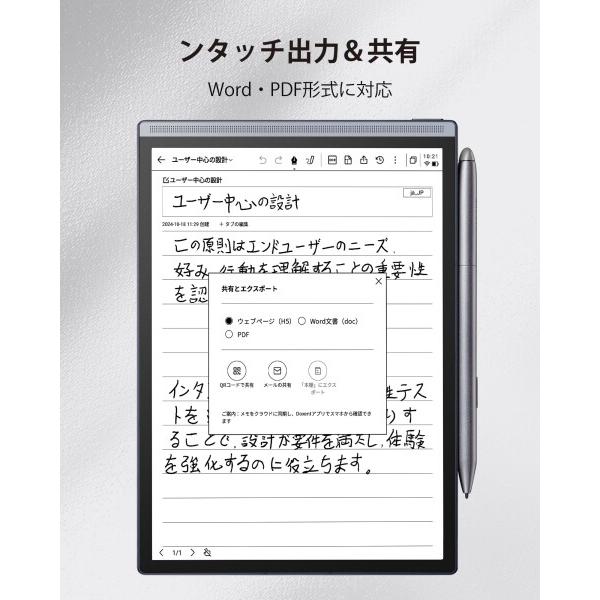 ンタッチ出力＆共有
Word・PDF形式に対応
ユーザー中心の設計
10:21
ユーザー中心の設計
ja_JP
ユーザー中心の設計
2024-10-18 11:29 創建 + タブの編集
この原則はエンドユーザーのニーズ、
好み、行動を理解することの重要性
を認
共有とエクスポート
ウェブページ（H5） Word文書（doc）
PDF
QRコードで共有 メールの共有 「本棚」にエクスポート
ご案内：メモをクラウドに同期し、Doxentアプリでスマホから確認できます
インタ 性テス
トを す
ることで、設計が要件を満たし、体験
を強化するのに役立ちます。
1/1